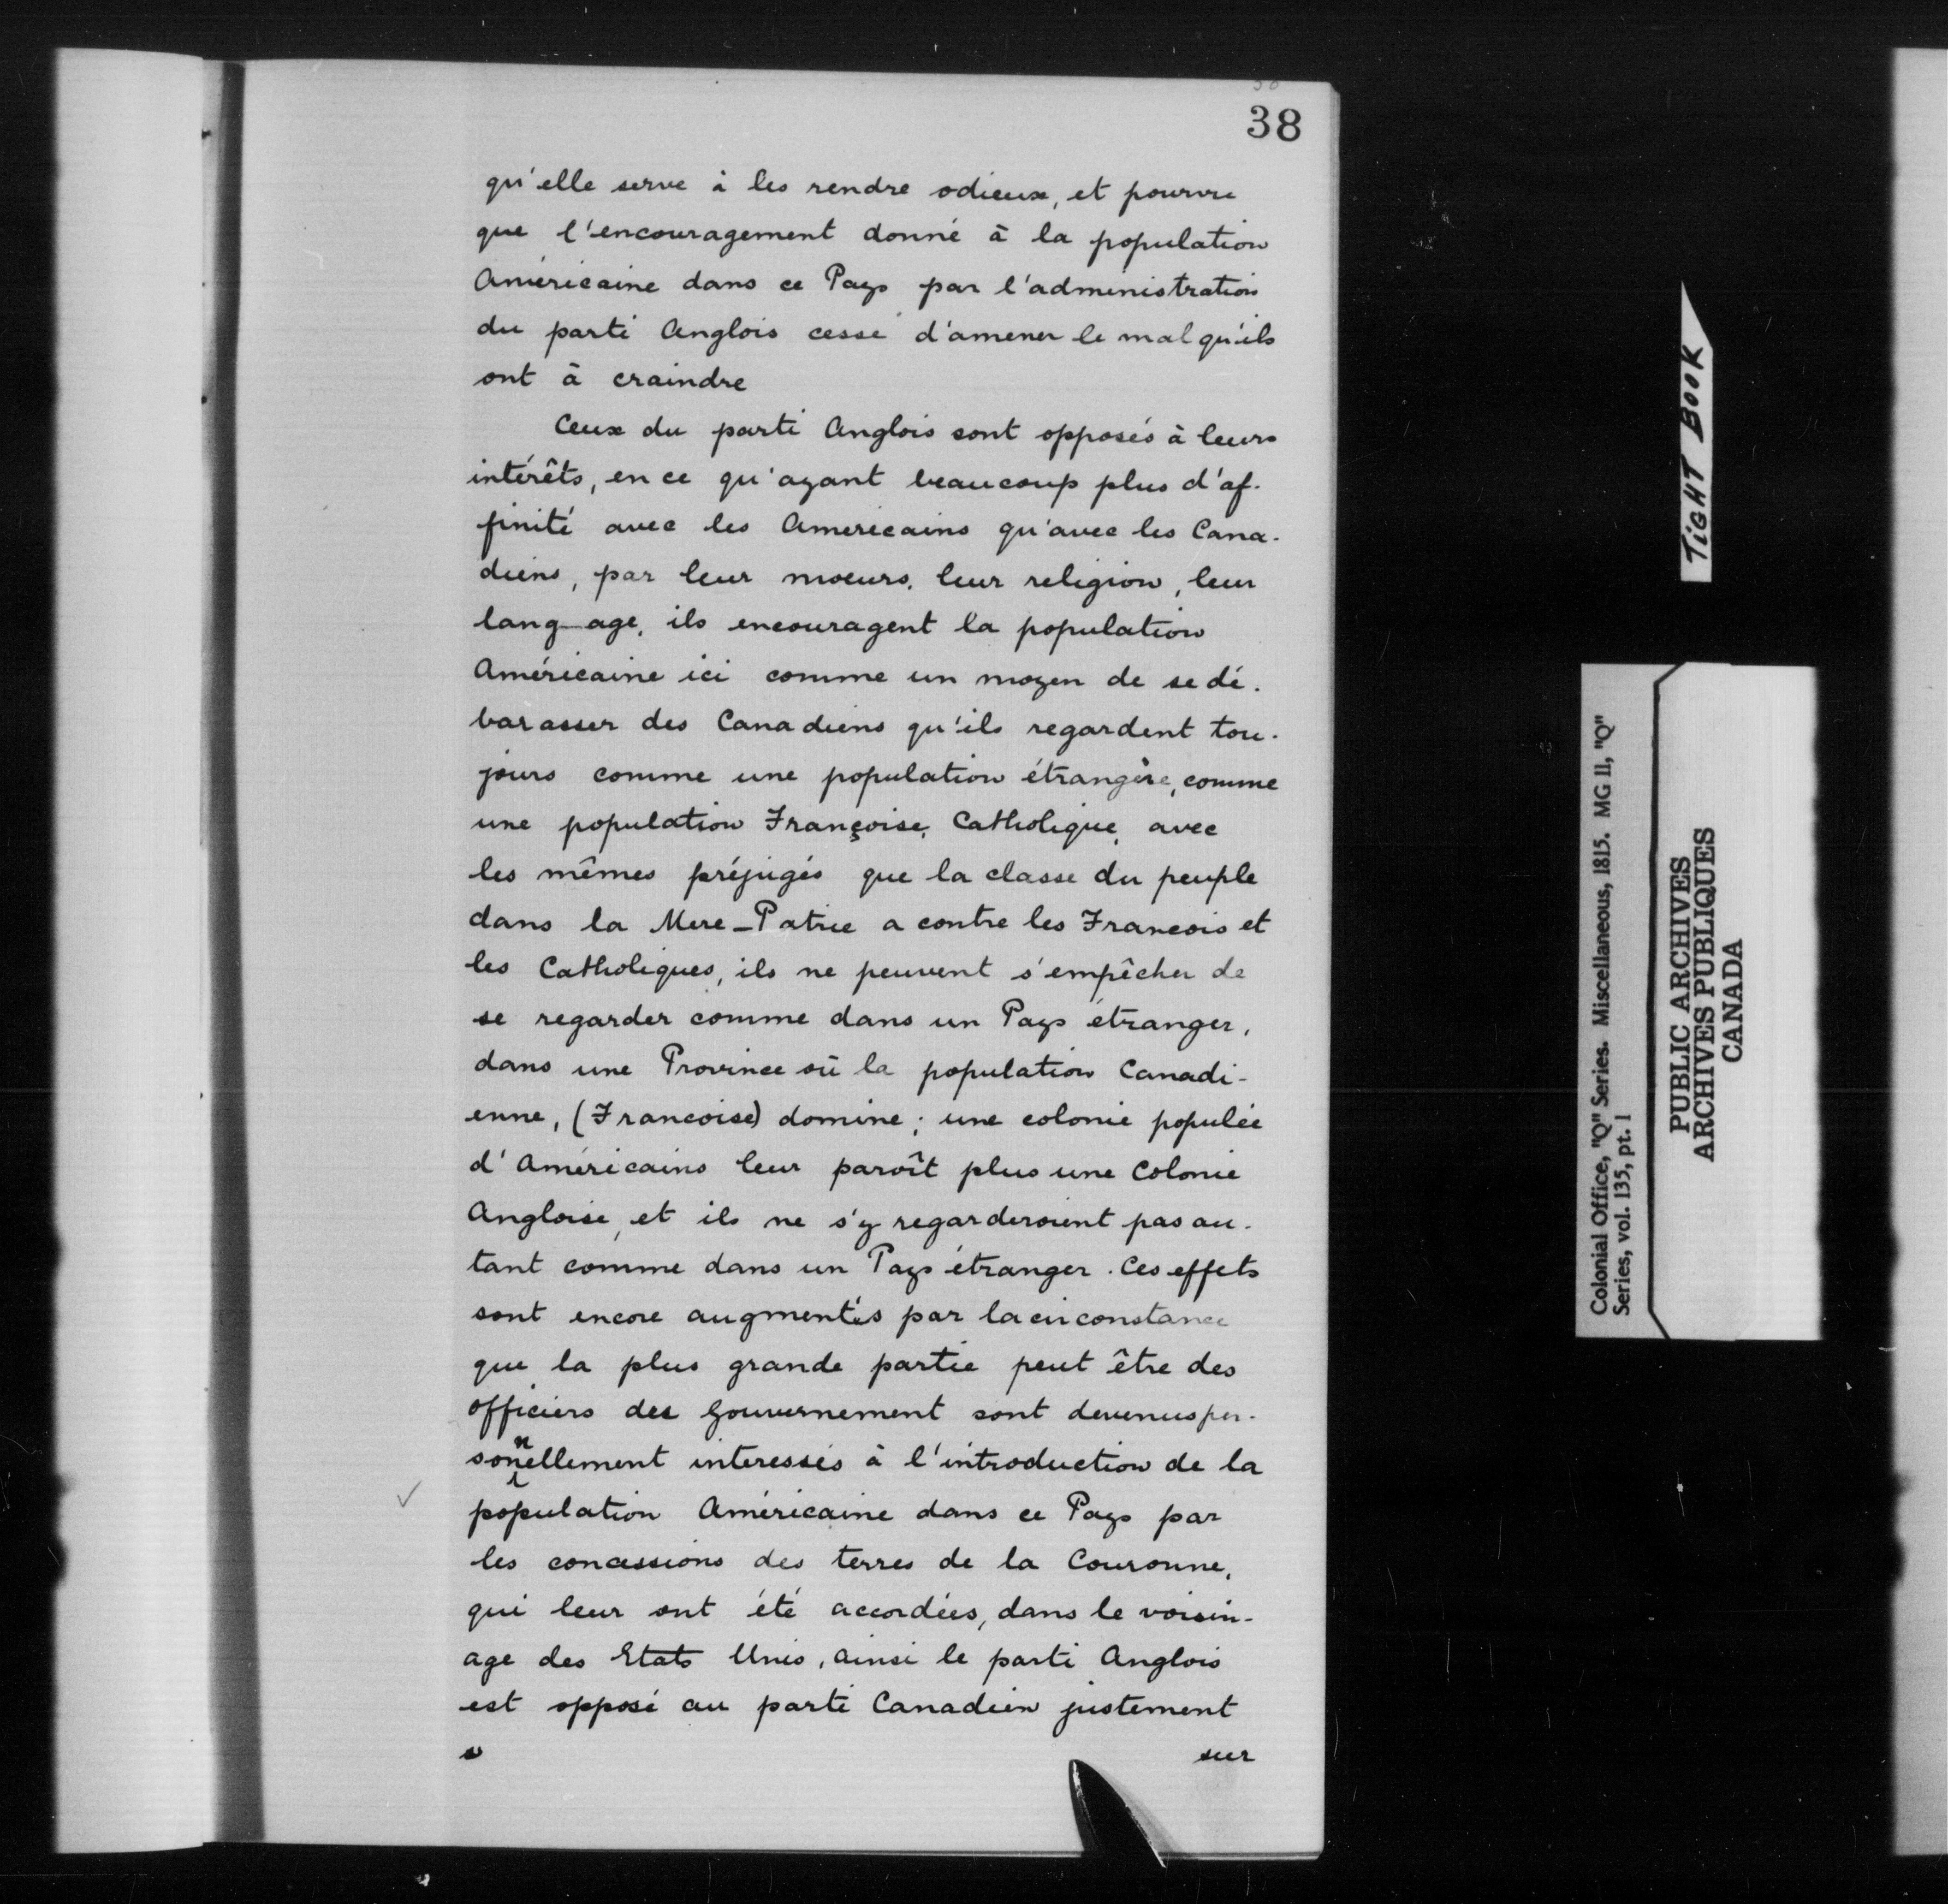 38
qu'elle serve à les rendre odieux, et pourvu
que l'encouragement donné à la population
Américaine dans ce Pays par l'administration
du parti Anglois cesse d'amener le mal qu'ils
ont à craindre
Ceux du parti Anglois sont opposés à leurs
intérêts, en ce qu'ayant beaucoup plus d'af-
finité avec les Americains qu'avec les Cana-
diens, par leur moeurs, leur religion, leur
lang-age, ils encouragent la population
Américaine ici comme un moyen de se dé-
barasser des Canadiens qu'ils regardent tou-
jours comme une population étrangère, comme
une population Françoise, Catholique, avec
les mêmes préjugés que la classe du peuple
dans la Mere-Patrie a contre les Francois et
les Catholiques, ils ne peuvent s'empêcher de
se regarder comme dans un Pays étranger,
dans une Province où la population Canadi-
enne, (Francoise) domine; une colonie populée
d'Américains leur paroît plus une Colonie
Angloise, et ils ne s'y regarderoient pas au-
tant comme dans un Pays étranger. Ces effets
sont encore augmentés par la circonstance
que la plus grande partie peut être des
officiers des Gouvernement sont devenus per-
sonnellement interessés à l'introduction de la
population Américaine dans ce Pays par
les concessions des terres de la Couronne,
qui leur ont été accordées, dans le voisin-
age des Etats Unis, ainsi le parti Anglois
est opposé au parti Canadien justement
s
sur
TIGHT BOOK
Colonial Office, "Q" Series. Miscellaneous, 1815. MG 11, "Q"
Series, vol. 135, pt. 1
PUBLIC ARCHIVES
ARCHIVES PUBLIQUES
CANADA